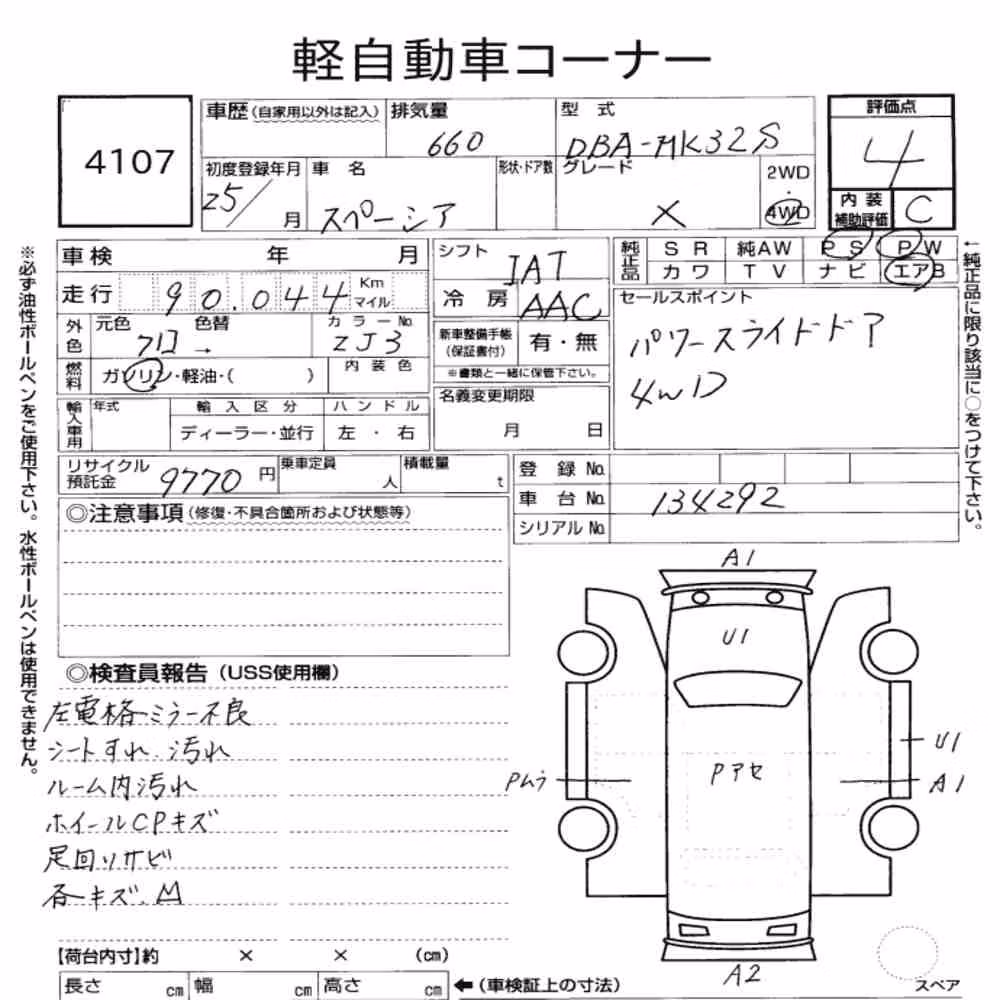 軽自動車コーナー
4107
車歴(自家用以外は記入)
排気量
660
型式
DBA-MK32S
評価点
4
初度登録年月
25/ 月
車名
スペーシア
形状・ドア数
グレード
X
2WD
・
4WD
内装
補助評価
C
車検 年 月
走行 90.044 Km
マイル
シフト
IAT
冷房
AAC
純正品
SR 純AW PS PW
カワ TV ナビ エアB
セールスポイント
パワースライドドア
4WD
外色
元色 色替
クロ →
カラーNo.
ZJ3
新車整備手帳
(保証書付)
有・無
※書類と一緒に保管下さい。
燃料
ガソリン・軽油・( )
内装色
名義変更期限
月 日
輸入車用
年式
輸入区分
ハンドル
ディーラー・並行
左・右
リサイクル
預託金
9770 円
乗車定員
人
積載量
t
登録No.
車台No. 134292
シリアルNo.
◎注意事項(修復・不具合箇所および状態等)
◎検査員報告(USS使用欄)
左電格ミラー不良
シートすれ 汚れ
ルーム内汚れ
ホイールCPキズ
足回リサビ
各キズ、凹
A1
U1
Pムラ
Pアセ
U1
A1
A2
スペア
【荷台内寸】約 × × (cm)
長さ cm 幅 cm 高さ cm
←(車検証上の寸法)
※必ず油性ボールペンをご使用下さい。水性ボールペンは使用できません。
←純正品に限り該当に○をつけて下さい。